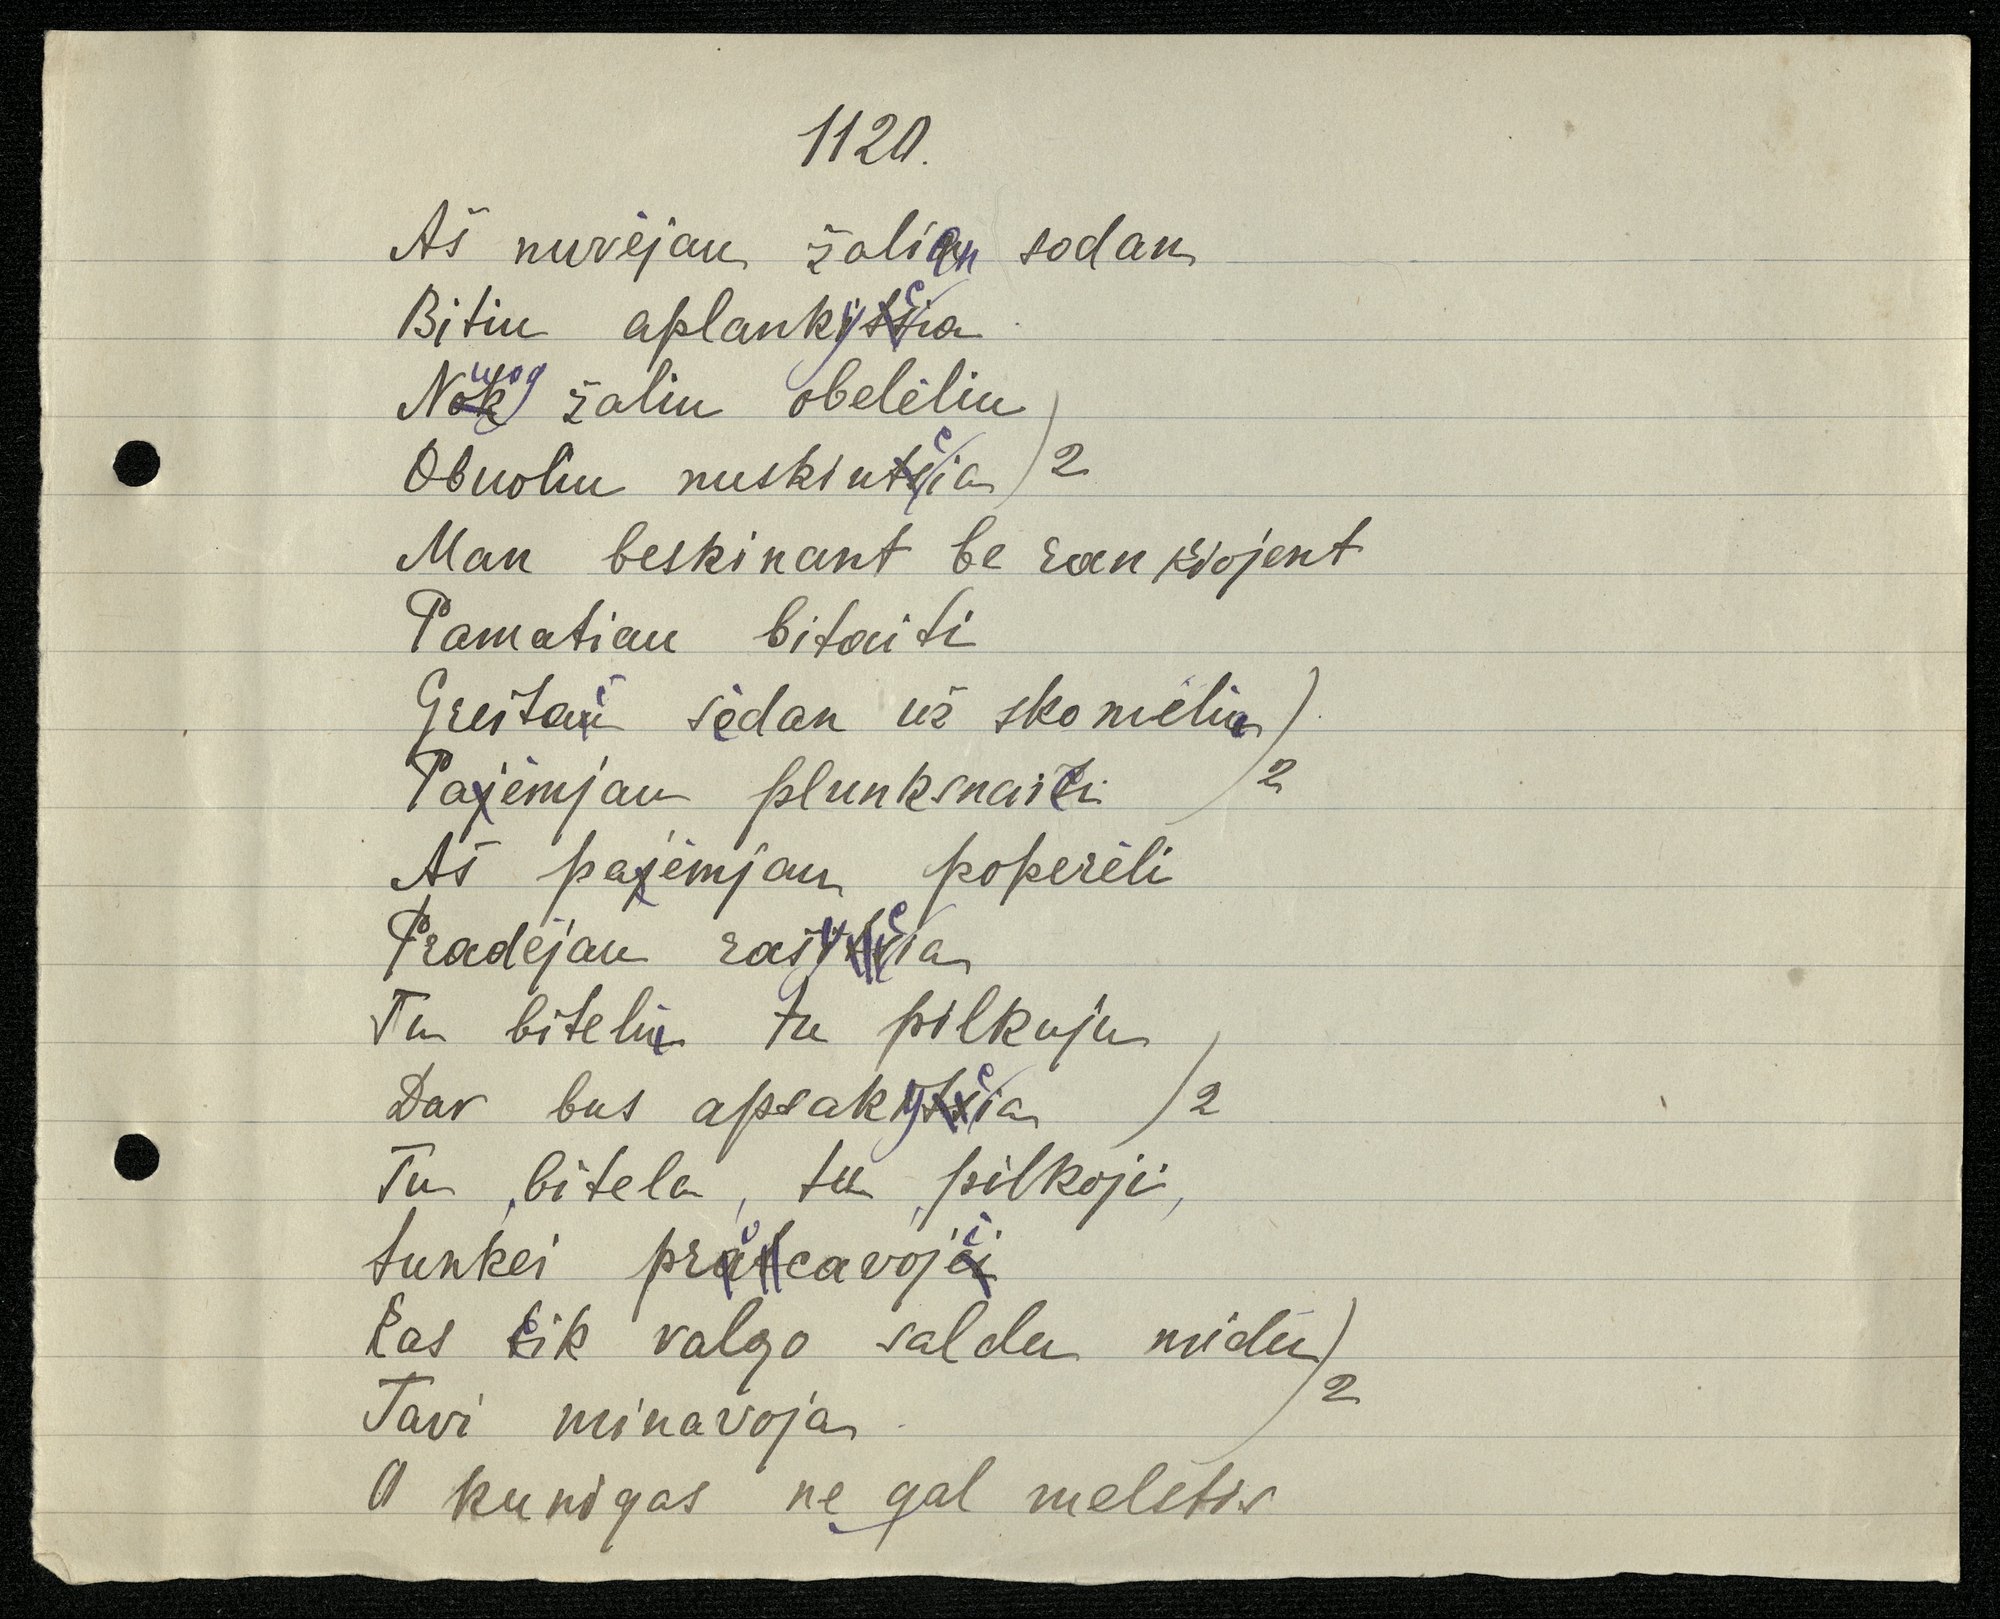 1120.
Aš nuvėjau žalian sodan
Bitiu aplankyčia
Nuog žaliu obelėliu
Obuoliu nuskinčia 2
Man beskinant be rankiojent
Pamatiau bitaiti
Greitai sėdau už skomėliu
Pajėmjau plunksnaiti 2
Aš pajėmjau poperėli
Pradėjau rašyčia
Tu biteliu tu pilkuju
Dar bus apsakyčia 2
Tu, bitela, tu, pilkoji,
tunkei pracavoji
Kas tik valgo saldu midu
Tavi minavoja 2
O kunigas ne gal melstis